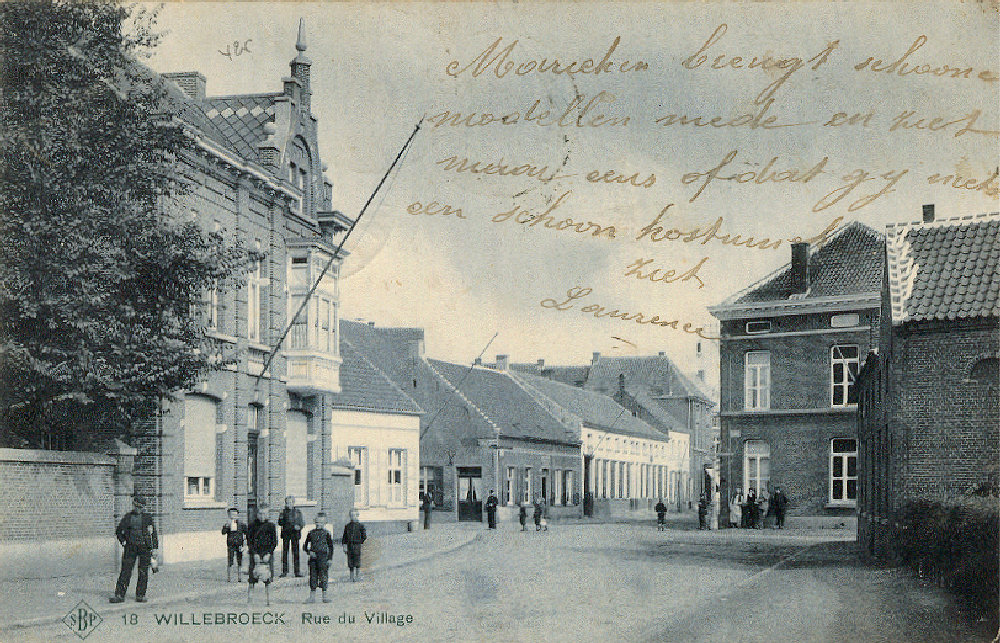 Marieken brengt schoone
modellen mede en ziet
nieuw eens of dat gy niet
een schoon kostumeke
ziet
Laurence
SBP
18 WILLEBROECK Rue du Village